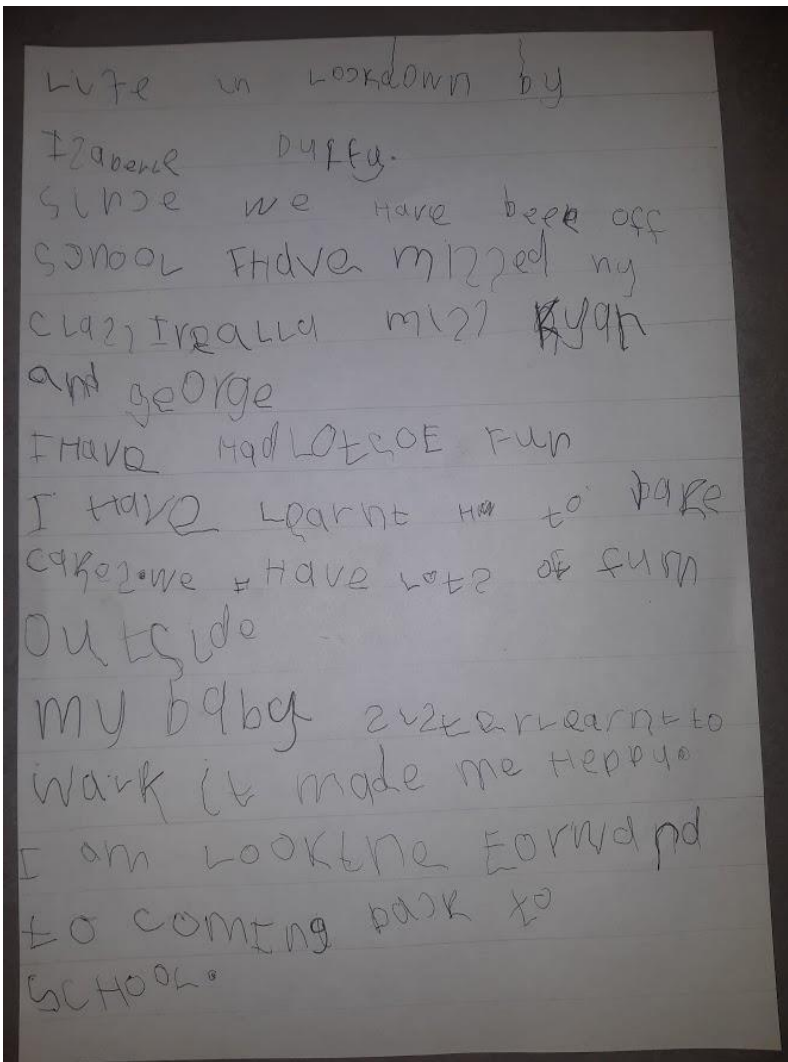 Life in Lockdown by
Izabelle Duffy.
Since we Have been off
School I Have mizzed my
clazz I really mizz Ryan
and george
I Have Had Lots OF Fun
I Have Learnt How to bake
cakez. we Have Lotz of fun
Outside
my baby zizter Learnt to
walk it made me Heppy.
I am Looking Forward
to coming back to
SCHOOL.